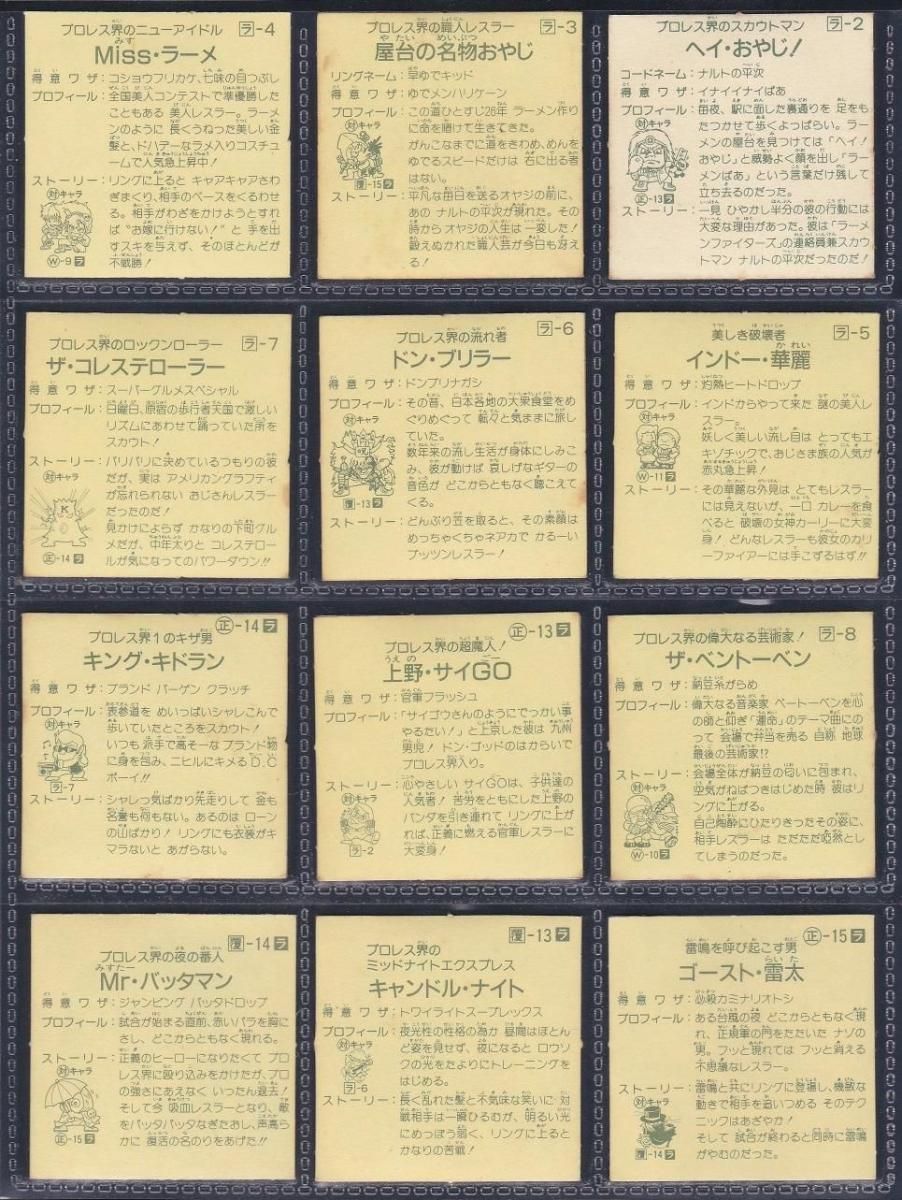 プロレス界のニューアイドル
ラ-4
Miss・ラーメ
得意ワザ：コショウフリカケ、七味の目つぶし
プロフィール：全国美人コンテストで準優勝した
こともある 美人レスラー。ラーメ
ンのように 長くうねった美しい金
髪と、ドハデーなラメ入りコスチュ
ームで人気急上昇中！
ストーリー：リングに上ると キャアキャアさわ
ぎまくり、相手のペースをくるわせ
る。相手がわざをかけようとすれ
ば “お嫁に行けない！” と 手を出
すスキを与えず、そのほとんどが
不戦勝！
対キャラ
W-9 ラ
プロレス界の職人レスラー
ラ-3
屋台の名物おやじ
リングネーム：早ゆでキッド
得意ワザ：ゆでメンハリケーン
プロフィール：この道ひとすじ26年 ラーメン作り
に命を賭けて生きてきた。
がんこなまでに道をきわめ、めんを
ゆでるスピードだけは 右に出る者
はない。
対キャラ
覆-15 ラ
ストーリー：平凡な毎日を送るオヤジの前に、
あの ナルトの平次が現れた。その
時から オヤジの人生は 一変した！
鍛えぬかれた職人芸が今日も冴え
る！
プロレス界のスカウトマン
ラ-2
ヘイ・おやじ！
コードネーム：ナルトの平次
得意ワザ：イナイイナイばあ
プロフィール：毎夜、駅に面した裏通りを 足をも
たつかせて歩くよっぱらい。ラー
メンの屋台を見つけては「ヘイ！
おやじ」と威勢よく顔を出し「ラー
メンばあ」という言葉だけ残して
立ち去るのだった。
対キャラ
正-13 ラ
ストーリー：一見 ひやかし半分の彼の行動には
大変な理由があった。彼は「ラー
メンファイターズ」の連絡員兼スカウ
トマン ナルトの平次だったのだ！
プロレス界のロックンローラー
ラ-7
ザ・コレステローラー
得意ワザ：スーパーグルメスペシャル
プロフィール：日曜日、原宿の歩行者天国で激しい
リズムにあわせて踊っていた所を
スカウト！
ストーリー：バリバリに決めているつもりの彼
だが、実は アメリカングラフティ
が忘れられない おじさんレスラー
だったのだ！
見かけによらず かなりの下町グル
メだが、中年太りと コレステロー
ルが気になってのパワーダウン!!
対キャラ
K
正-14 ラ
プロレス界の流れ者
ラ-6
ドン・ブリラー
得意ワザ：ドンブリナガシ
プロフィール：その昔、日本各地の大衆食堂をめ
ぐりめぐって 転々と気ままに旅し
ていた。
数年来の流し生活が身体にしみこ
み、彼が動けば 哀しげなギターの
音色が どこからともなく聴こえて
くる。
対キャラ
覆-13 ラ
ストーリー：どんぶり笠を取ると、その素顔は
めっちゃくちゃネアカで かるーい
プッツンレスラー！
美しき破壊者
ラ-5
インドー・華麗
得意ワザ：灼熱ヒートドロップ
プロフィール：インドからやって来た 謎の美人レ
スラー。
妖しく美しい流し目は とってもエ
キゾチックで、おじさま族の人気が
赤丸急上昇！
対キャラ
W-11 ラ
ストーリー：その華麗な外見は、とてもレスラー
には見えないが、一口 カレーを食
べると 破壊の女神カーリーに大変
身！ どんなレスラーも彼女のカリ
ーファイアーには手こずるはず!!
プロレス界1のキザ男
正-14 ラ
キング・キドラン
得意ワザ：ブランド バーゲン クラッチ
プロフィール：表参道を めいっぱいシャレこんで
歩いていたところをスカウト！
いつも 派手で高そーな ブランド物
に身を包み、ニヒルにキメるD.C
ボーイ!!
対キャラ
ラ-7
ストーリー：シャレっ気ばかり先走りして 金も
名誉も何もない。あるのは ローン
の山ばかり！ リングにも衣装がキ
マラないと あがらない。
プロレス界の超魔人！
正-13 ラ
上野・サイGO
得意ワザ：官軍フラッシュ
プロフィール：「サイゴウさんのようにでっかい事
やるたい！」と上京した彼は 九州
男児！ ドン・ゴッドのはからいで
プロレス界入り。
ストーリー：心やさしい サイGOは、子供達の
人気者！ 苦労をともにした上野の
パンダを引き連れて リングに上が
れば、正義に燃える官軍レスラーに
大変身！
対キャラ
ラ-2
プロレス界の偉大なる芸術家！
ラ-8
ザ・ベントーベン
得意ワザ：納豆糸がらめ
プロフィール：偉大なる音楽家 ベートーベンを心
の師と仰ぎ「運命」のテーマ曲にの
って 会場で弁当を売る 自称 地球
最後の芸術家!?
ストーリー：会場全体が納豆の匂いに包まれ、
空気がねばつきはじめた時 彼はリ
ングに上がる。
自己陶酔にひたりきったその姿に、
相手レスラーは ただただ唖然と
してしまうのだった。
対キャラ
W-10 ラ
プロレス界の夜の番人
覆-14 ラ
Mr・バッタマン
得意ワザ：ジャンピング バッタドロップ
プロフィール：試合が始まる直前、赤いバラを胸に
さし、どこからともなく現れる。
ストーリー：正義のヒーローになりたくて プロ
レス界に殴り込みをかけたが、プロ
の強さにあえなく いったん退去！
そして今 吸血レスラーとなり、敵
をバッタバッタなぎたおし、声高ら
かに 復活の名のりをあげた!!
対キャラ
正-15 ラ
プロレス界の
ミッドナイトエクスプレス
覆-13 ラ
キャンドル・ナイト
得意ワザ：トワイライトスープレックス
プロフィール：夜光性の性格の為か 昼間はほとん
ど姿を見せず、夜になると ロウソ
クの光をたよりにトレーニングを
はじめる。
対キャラ
ラ-6
ストーリー：長く乱れた髪と不気味な笑いに 対
戦相手は一瞬ひるむが、明るい光
にめっぽう弱く、リングに上ると
かなりの苦戦！
雷鳴を呼び起こす男
正-15 ラ
ゴースト・雷太
得意ワザ：必殺カミナリオトシ
プロフィール：ある台風の夜 どこからともなく現
れ、正規軍の門をたたいた ナゾの
男。フッと現れては フッと消える
不思議なレスラー。
ストーリー：雷鳴と共にリングに登場し、機敏な
動きで相手を追いつめる そのテク
ニックはあざやか！
そして 試合が終わると同時に雷鳴
がやむのだった。
対キャラ
覆-14 ラ